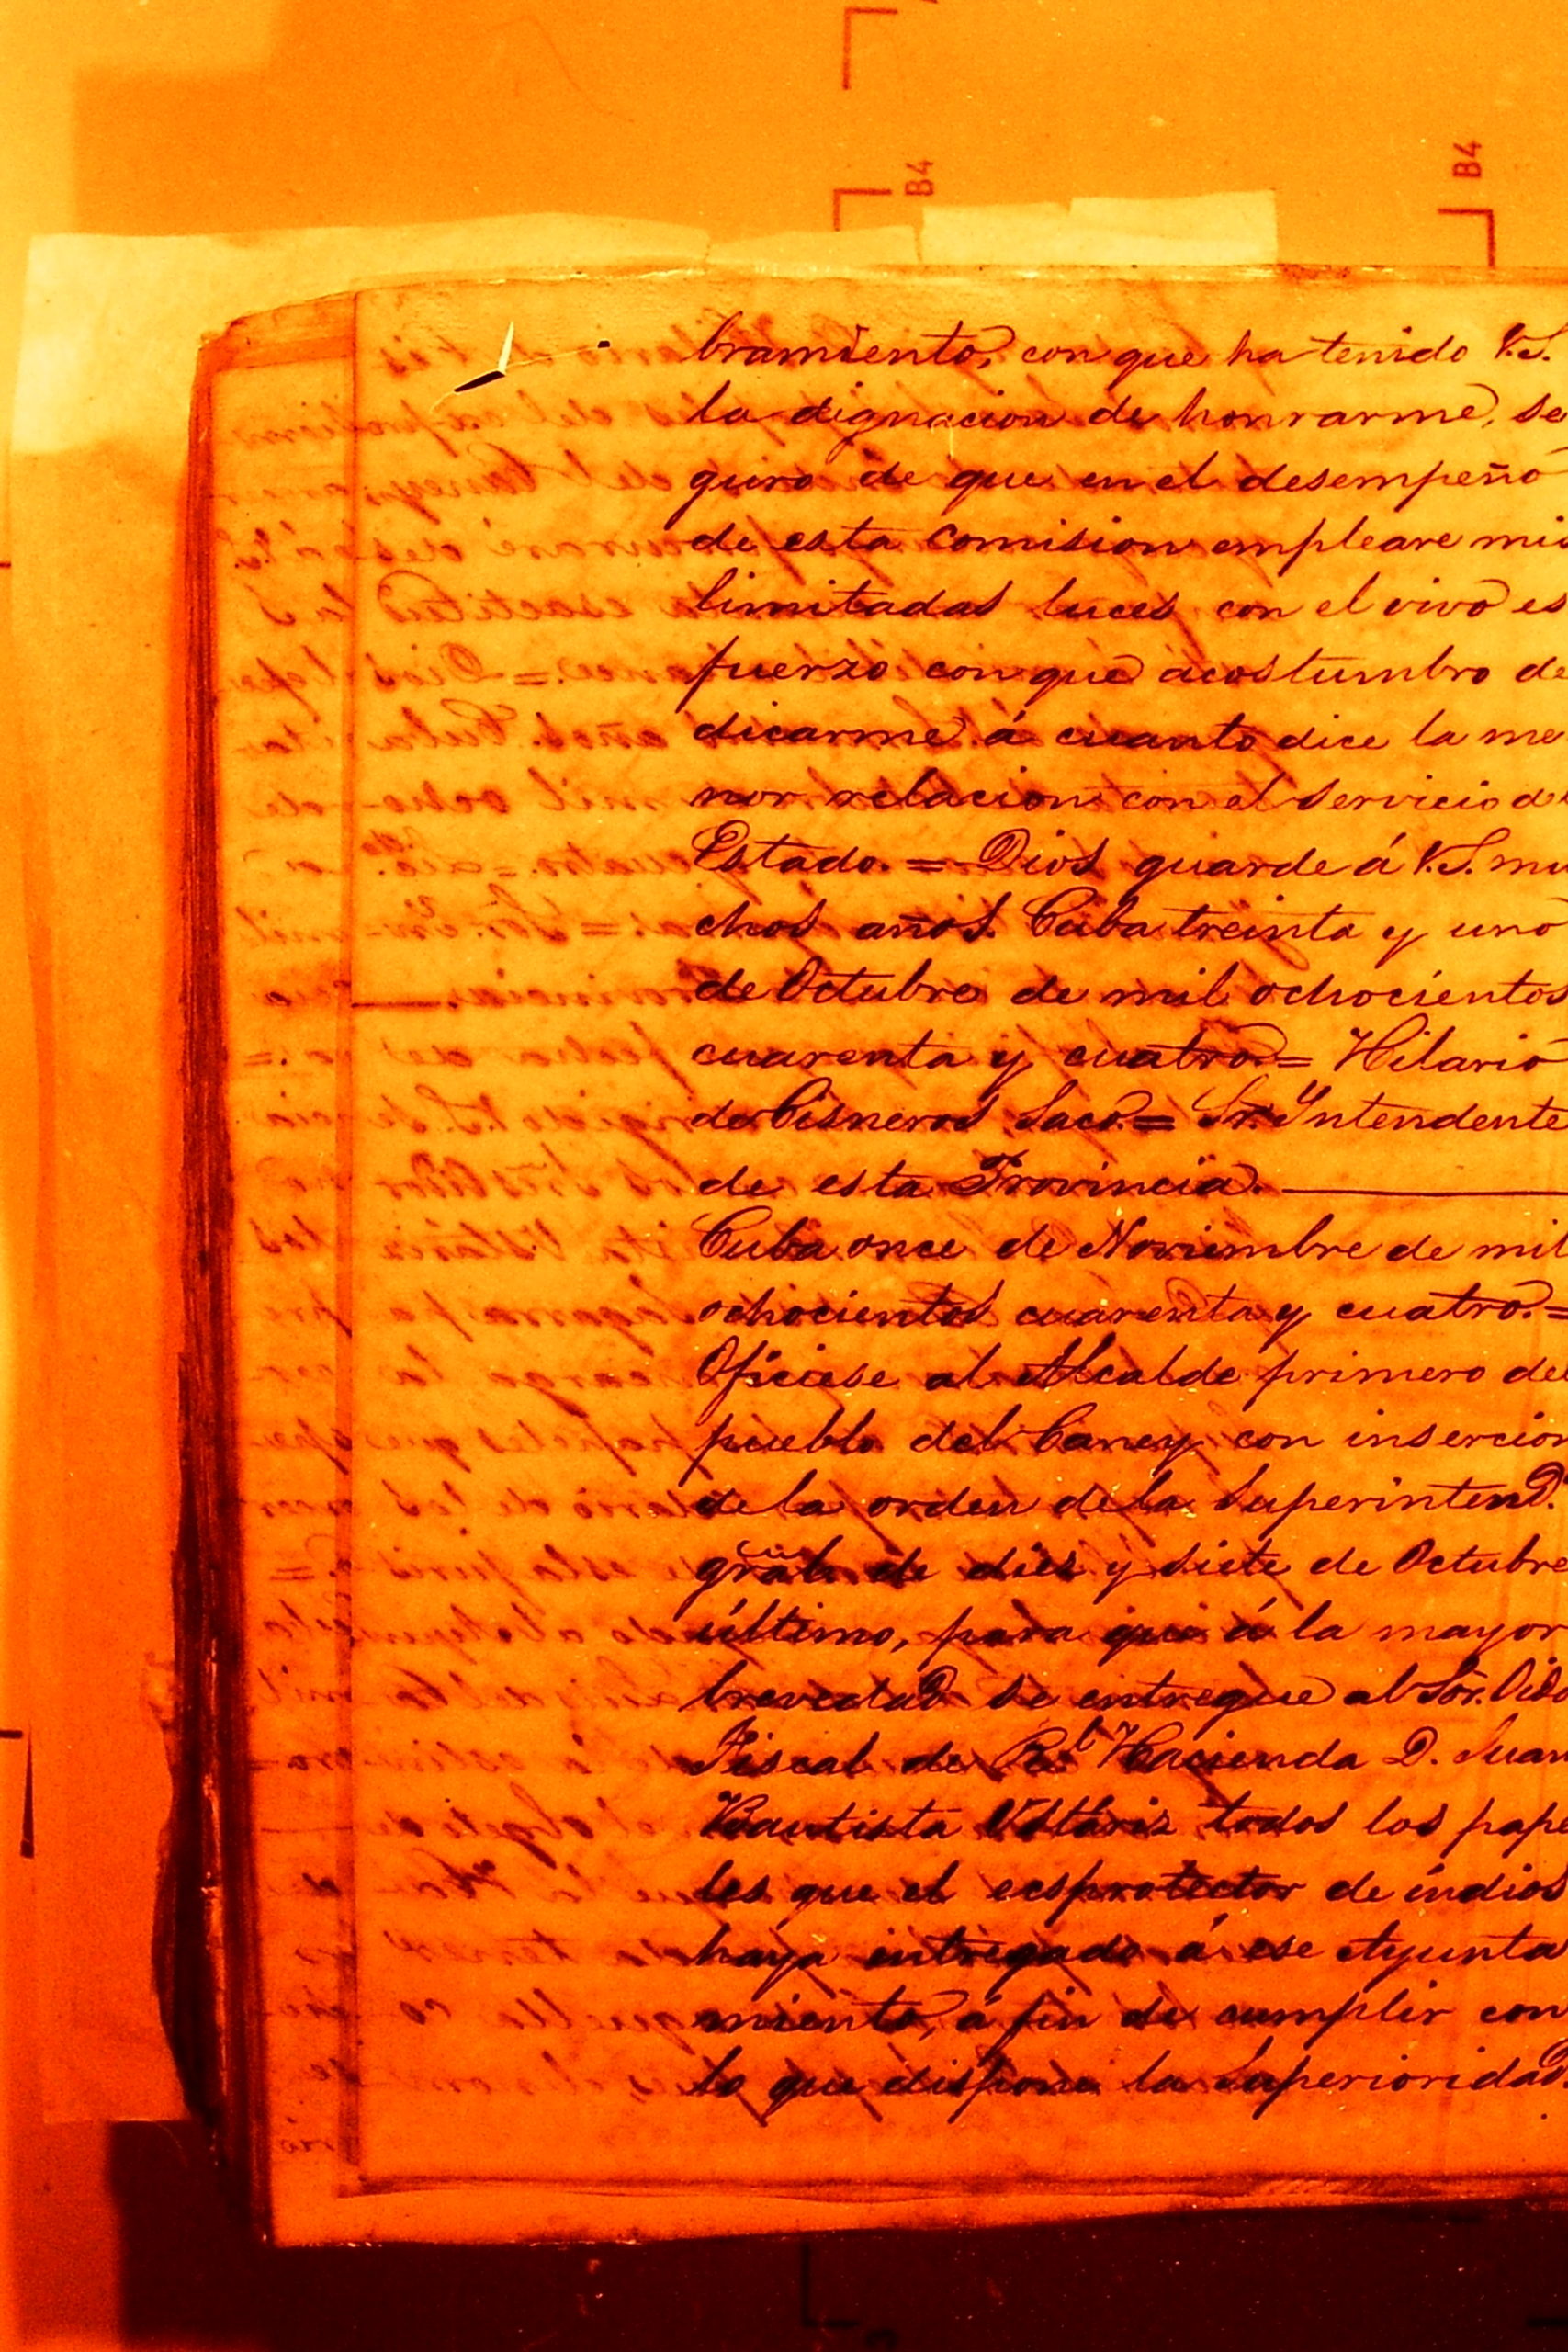 B4
B4
bramiento, con que ha tenido V.S.
la dignacion de honrarme, se
guro de que en el desempeño
de esta Comision empleare mis
limitadas luces con el vivo es
fuerzo con que acostumbro de
dicarme á cuanto dice la me
nor relacion con el servicio del
Estado. = Dios guarde á V.S. mu
chos años. Cuba treinta y uno
de Octubre de mil ochocientos
cuarenta y cuatro = Hilario
de Cisneros Saco. = Sr. Yntendente
de esta Provincia.
Cuba once de Noviembre de mil
ochocientos cuarenta y cuatro. =
Ofíciese al Alcalde primero del
pueblo del Caney con insercion
de la orden de la Superintend.ª
gral de diez y siete de Octubre
último, para que á la mayor
brevedad se entregue al Sor.
Fiscal de Rl. Hacienda D. Juan
Bautista Ustáriz todos los pape
les que el ecsprotector de indios
haya entregado á ese Ayunta
miento, á fin de cumplir con
lo que dispone la Superioridad.